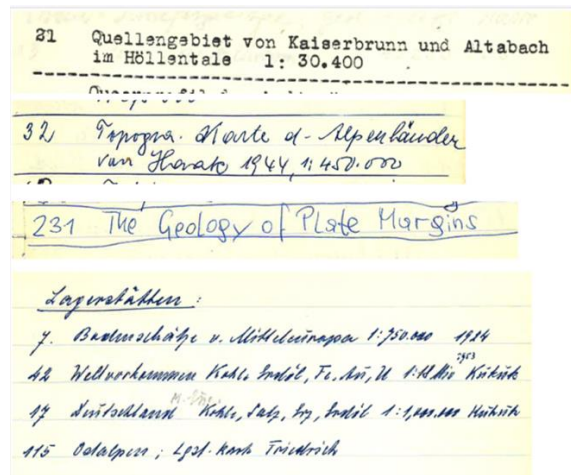 21 Quellengebiet von Kaiserbrunn und Altabach
im Höllentale 1: 30.400
32 Topogra. Karte d. Alpenländer
von Slanar 1944, 1:450.000
231 The Geology of Plate Margins
Lagerstätten :
7. Bodenschätze v. Mitteleuropa 1:750.000 1924
1953
42 Weltvorkommen Kohle Erdöl, Fe, Au, U
17 Deutschland Kohle, Salz, Erz, Erdöl 1:1,000.000
115 Ostalpen ; Lgst. Karte Friedrich